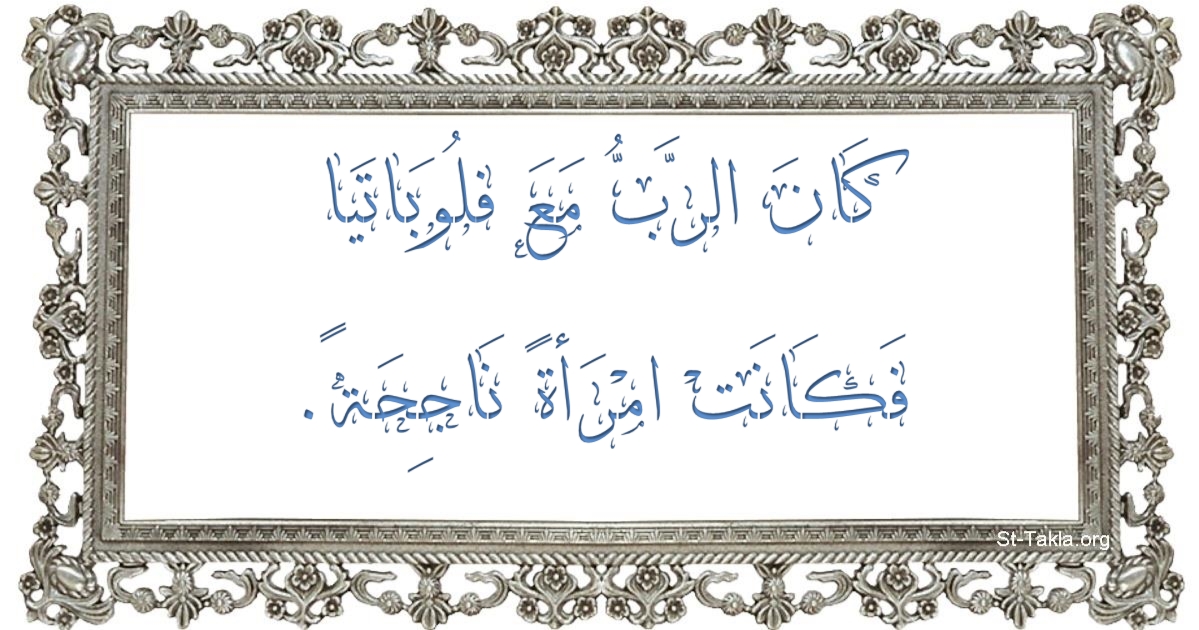 كَانَ الرَّبُّ مَعَ فلُوبَاتَيَا
فَكَانَتْ امْرَأةً نَاجِحَةً.
St-Takla.org